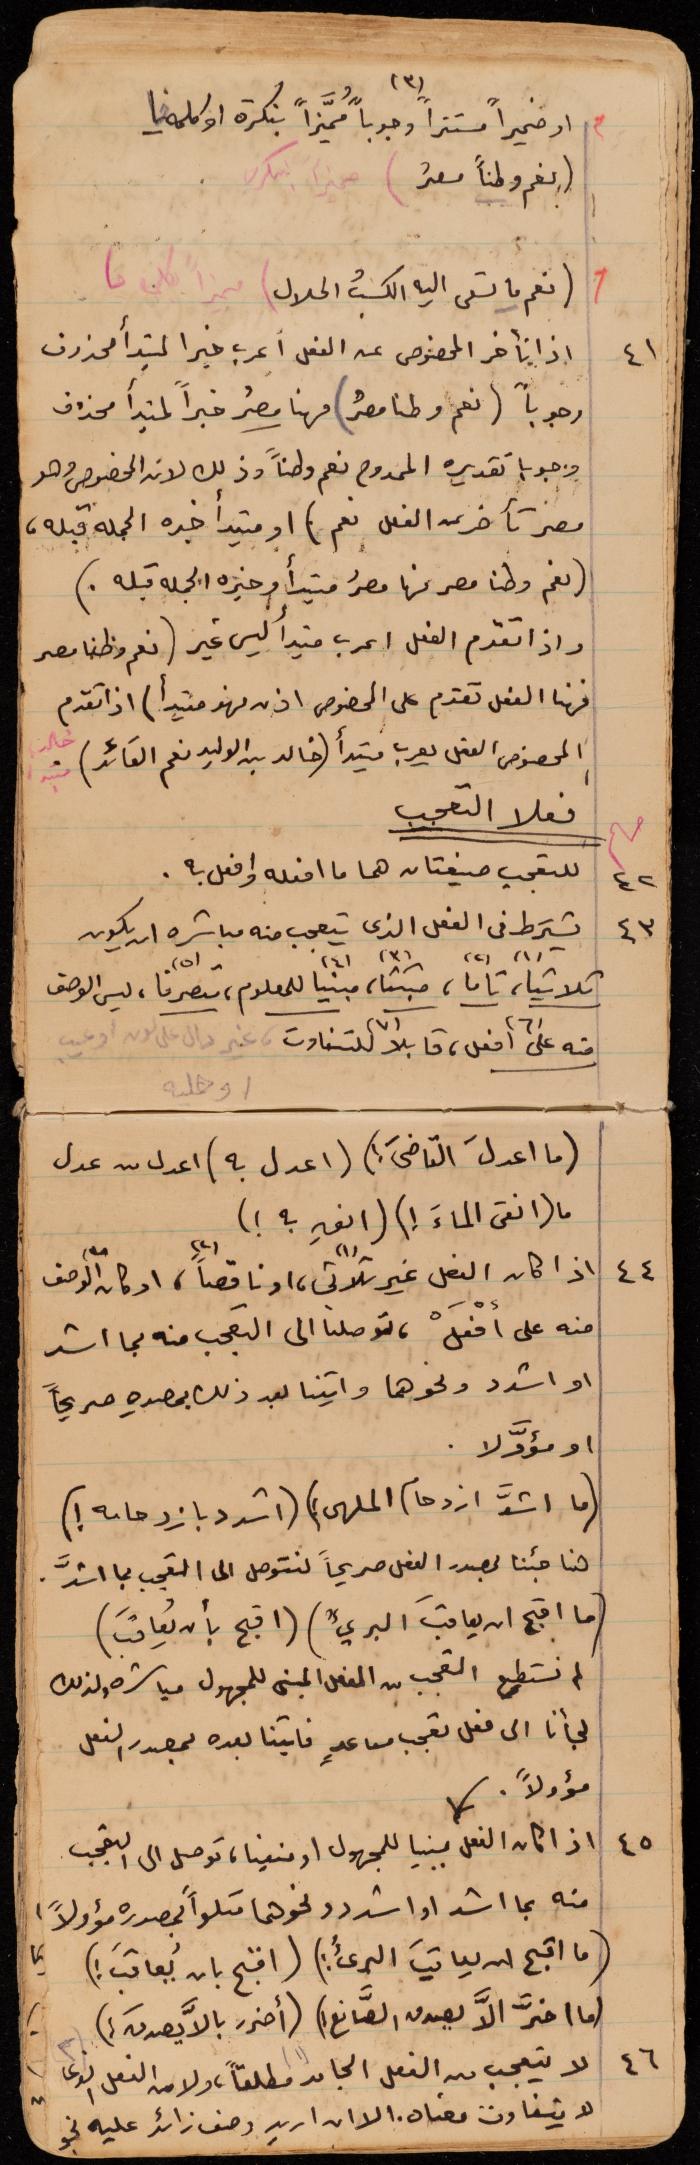 (٣)
او ضميراً مستتراً وجوباً مُميَّزاً بنكرة او كلمة ما
(نعم وطناً مصرُ) مميزاً بنكرة
(نعم ما تسعى اليه الكسبُ الحلال) مميزاً بكلمة ما
٤١ اذا تأخر المخصوص عن الفعل أعرب خبرا لمبتدأ محذوف
وجوباً (نعم وطنا مصرُ) فهنا مصرُ خبراً لمبتدأ محذوف
وجوبا تقديره الممدوح نعم وطناً وذلك لان المخصوص وهو
مصر تأخر عن الفعل نعم) او مبتدأ خبره الجملة قبله،
(نعم وطنا مصر فهنا مصرُ مبتدأ وخبره الجملة قبله.)
واذا تقدم الفعل اعرب مبتدأ ليس غير (نعم وطنا مصر
فهنا الفعل تقدم على المخصوص اذن فهو مبتدأ) اذا تقدم
المخصوص الفعل يعرب مبتدأ (خالد بن الوليد نعم القائد) خالد مبتدأ
فعلا التعجب
٤٢ للتعجب صيغتان هما ما افعله وافعل به.
٤٣ يشترط في الفعل الذى يتعجب منه مباشره ان يكون
(١) (٢) (٣) (٤) (٥)
ثلاثيا، تاما، مثبتا، مبنيا للمعلوم، متصرفا، ليس الوصف
(٦) (٧)
منه على أفعل، قابلا للتفاوت، غير دال على لون أو عيب
او حليه
(ما اعدلَ القاضىَ!) (اعدل به) اعدل من عدل
(ما انقى الماءَ!) (انقِ به!)
(١) (٢) (٣)
٤٤ اذا كان الفعل غير ثلاثي، او ناقصاً، او كان الوصف
منه على أفْعَلَ، توصلنا الى التعجب منه بما اشد
او اشدد ونحوهما واتينا بعد ذلك بمصدره صريحاً
او مؤوَّلا.
(ما اشدَّ ازدحام الملهى!) (اشدد بازدحامه!)
هنا جئنا بمصدر الفعل صريحاً لنتوصل الى التعجب بما اشدَّ.
(ما اقبح ان يعاقبَ البريءُ) (اقبح بأن يُعاقبَ)
لم نستطع التعجب من الفعل المبنى للمجهول مباشره ولذلك
لجأنا الى فعل تعجب مساعدٍ فاتينا بعده بمصدر الفعل
مؤولاً.
٤٥ اذا كان الفعل مبنيا للمجهول او منفيا، توصل الى التعجب
منه بما اشد او اشدد ونحوهما متلواً بمصدره مؤولاً
(ما اقبح ان يعاقبَ البرئُ!) (اقبح بان يُعاقبَ!)
(ما اضرَّ الاَّ يصدق الصَّانع!) (أضرر بالاَّ يصدقَ!)
٤٦ لا يتعجب من الفعل الجامد مطلقاً، ولا من الفعل الذى
لا يتفاوت معناه. الا ان اريد وصف زائد عليه نحو